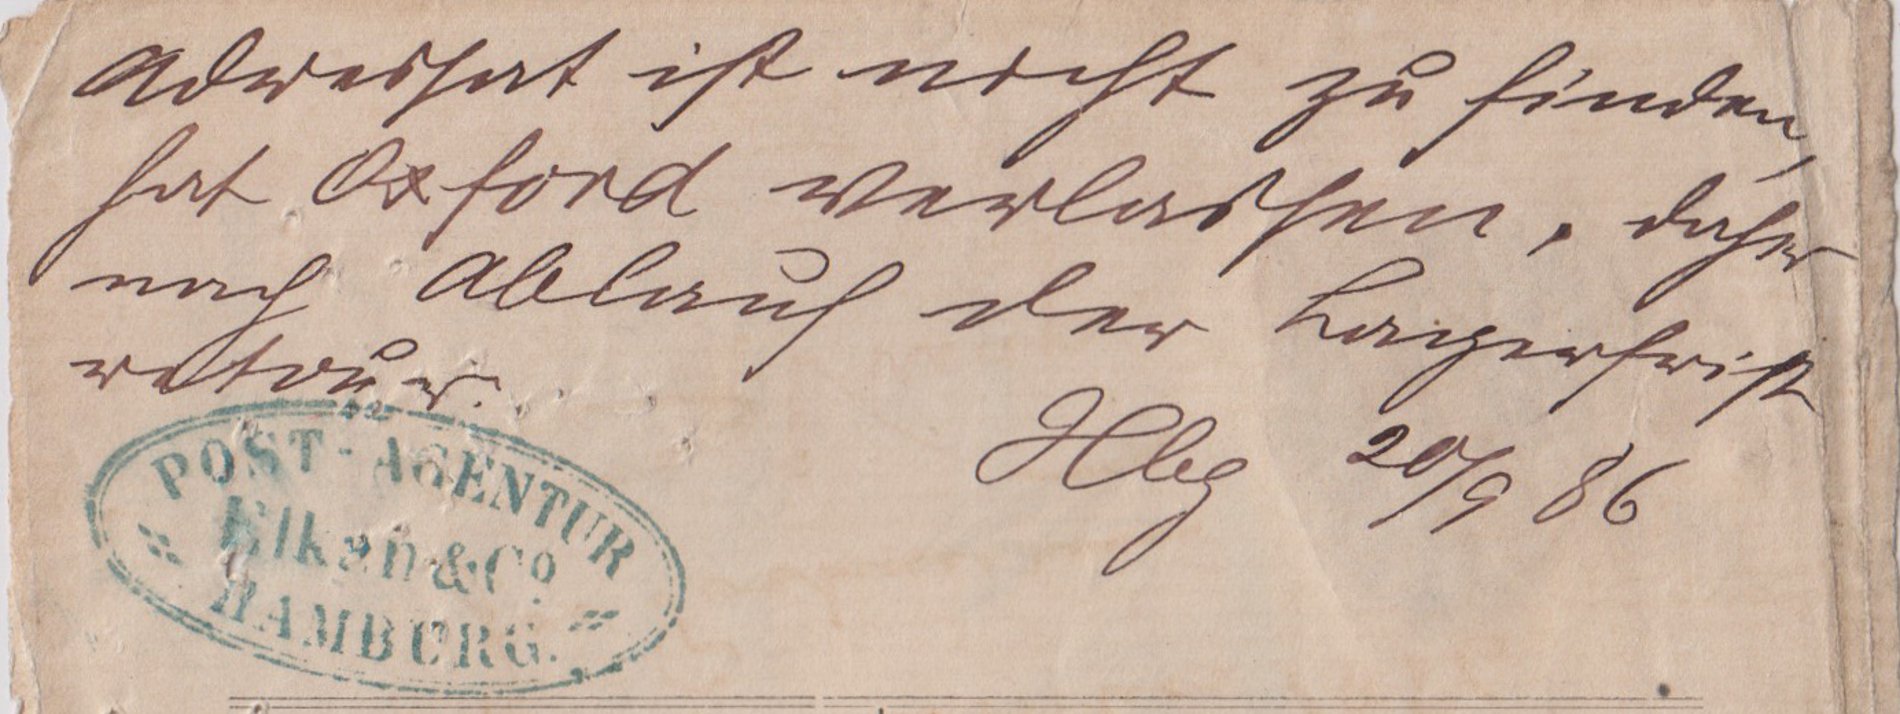 Adressat ist nicht zu finden,
hat Oxford verlassen, daher
nach Ablauf der Lagerfrist
retour.
Hbg 20/9 86
POST-AGENTUR
Elkan & Co
HAMBURG.